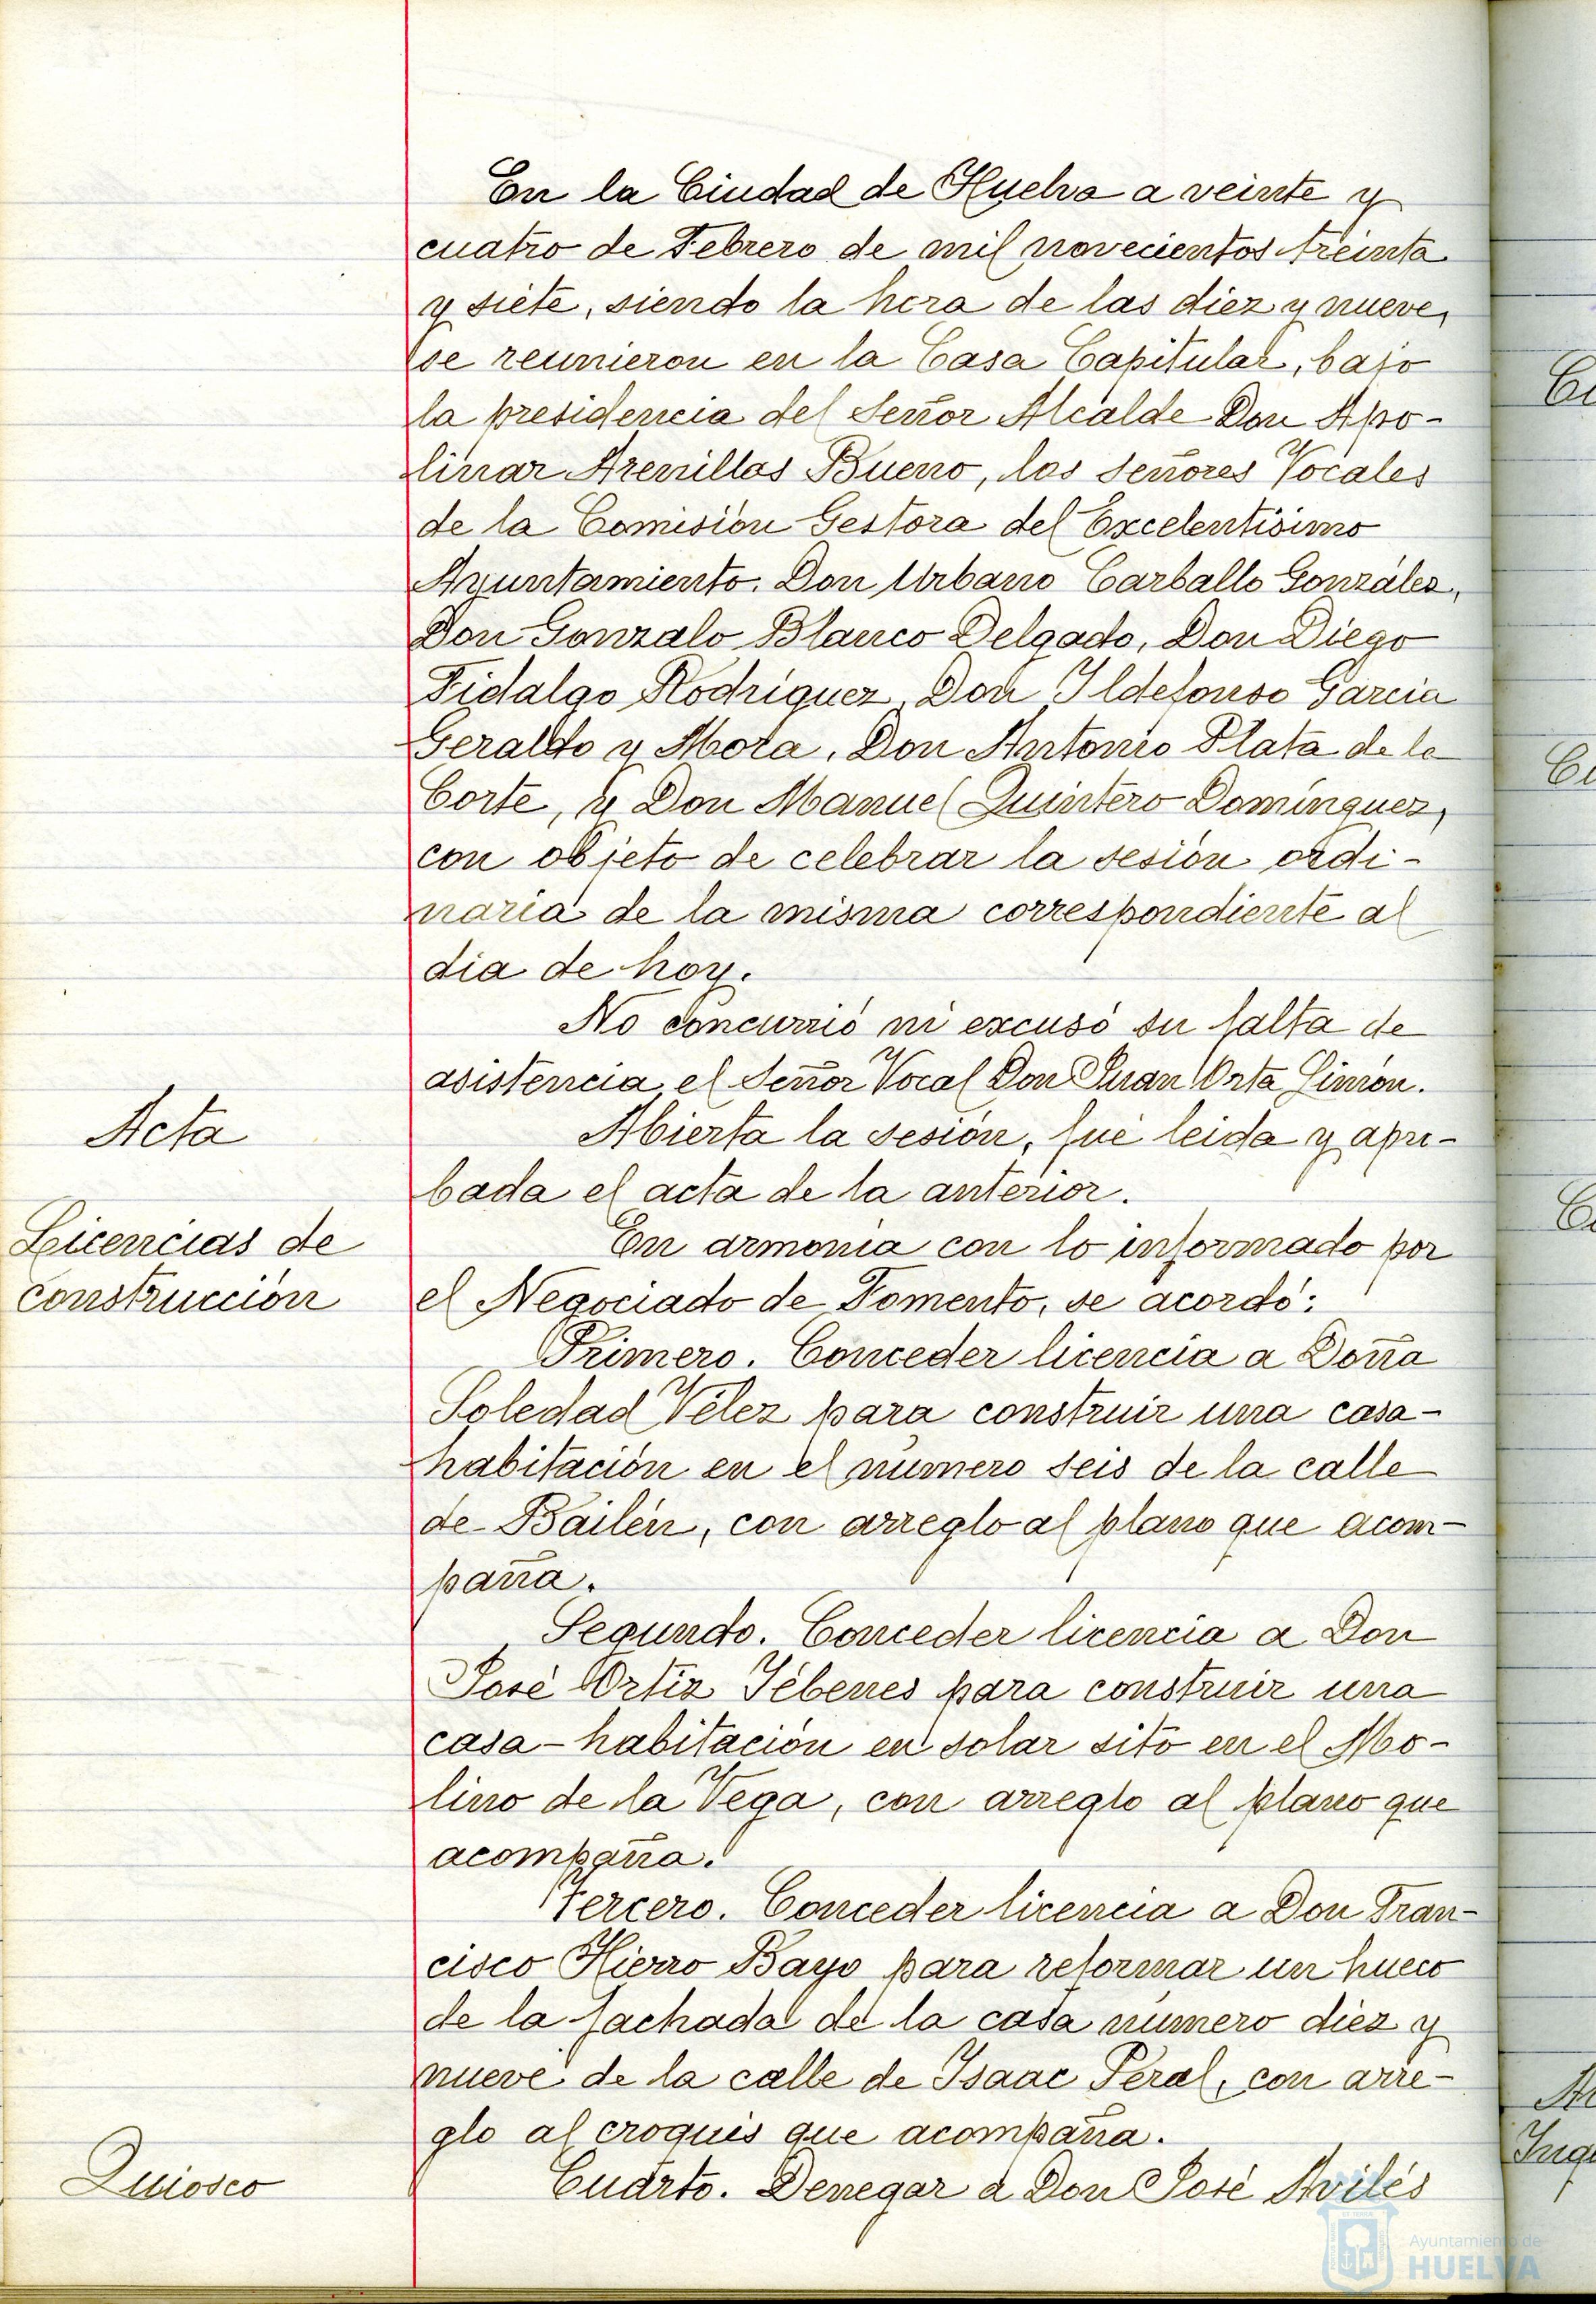 En la Ciudad de Huelva a veinte y
cuatro de Febrero de mil novecientos treinta
y siete, siendo la hora de las diez y nueve,
se reunieron en la Casa Capitular, bajo
la presidencia del Señor Alcalde Don Apo-
linar Arenillas Bueno, los señores Vocales
de la Comisión Gestora del Excelentísimo
Ayuntamiento, Don Urbano Carballo González,
Don Gonzalo Blanco Delgado, Don Diego
Fidalgo Rodríguez, Don Ildefonso García
Geraldo y Mora, Don Antonio Plata de la
Corte, y Don Manuel Quintero Domínguez,
con objeto de celebrar la sesión ordi-
naria de la misma correspondiente al
dia de hoy.
No concurrió ni excusó su falta de
asistencia el Señor Vocal Don Juan Orta Limón.
Acta
Abierta la sesión, fué leida y apro-
bada el acta de la anterior.
Licencias de
construcción
En armonía con lo informado por
el Negociado de Fomento, se acordó:
Primero. Conceder licencia a Doña
Soledad Vélez para construir una casa-
habitación en el número seis de la calle
de Bailén, con arreglo al plano que acom-
paña.
Segundo. Conceder licencia a Don
José Ortiz Tébenes para construir una
casa-habitación en solar sito en el Mo-
lino de la Vega, con arreglo al plano que
acompaña.
Tercero. Conceder licencia a Don Fran-
cisco Hierro Bayo para reformar un hueco
de la fachada de la casa número diez y
nueve de la calle de Isaac Peral, con arre-
glo al croquis que acompaña.
Quiosco
Cuarto. Denegar a Don José Avilés
Ayuntamiento de
HUELVA